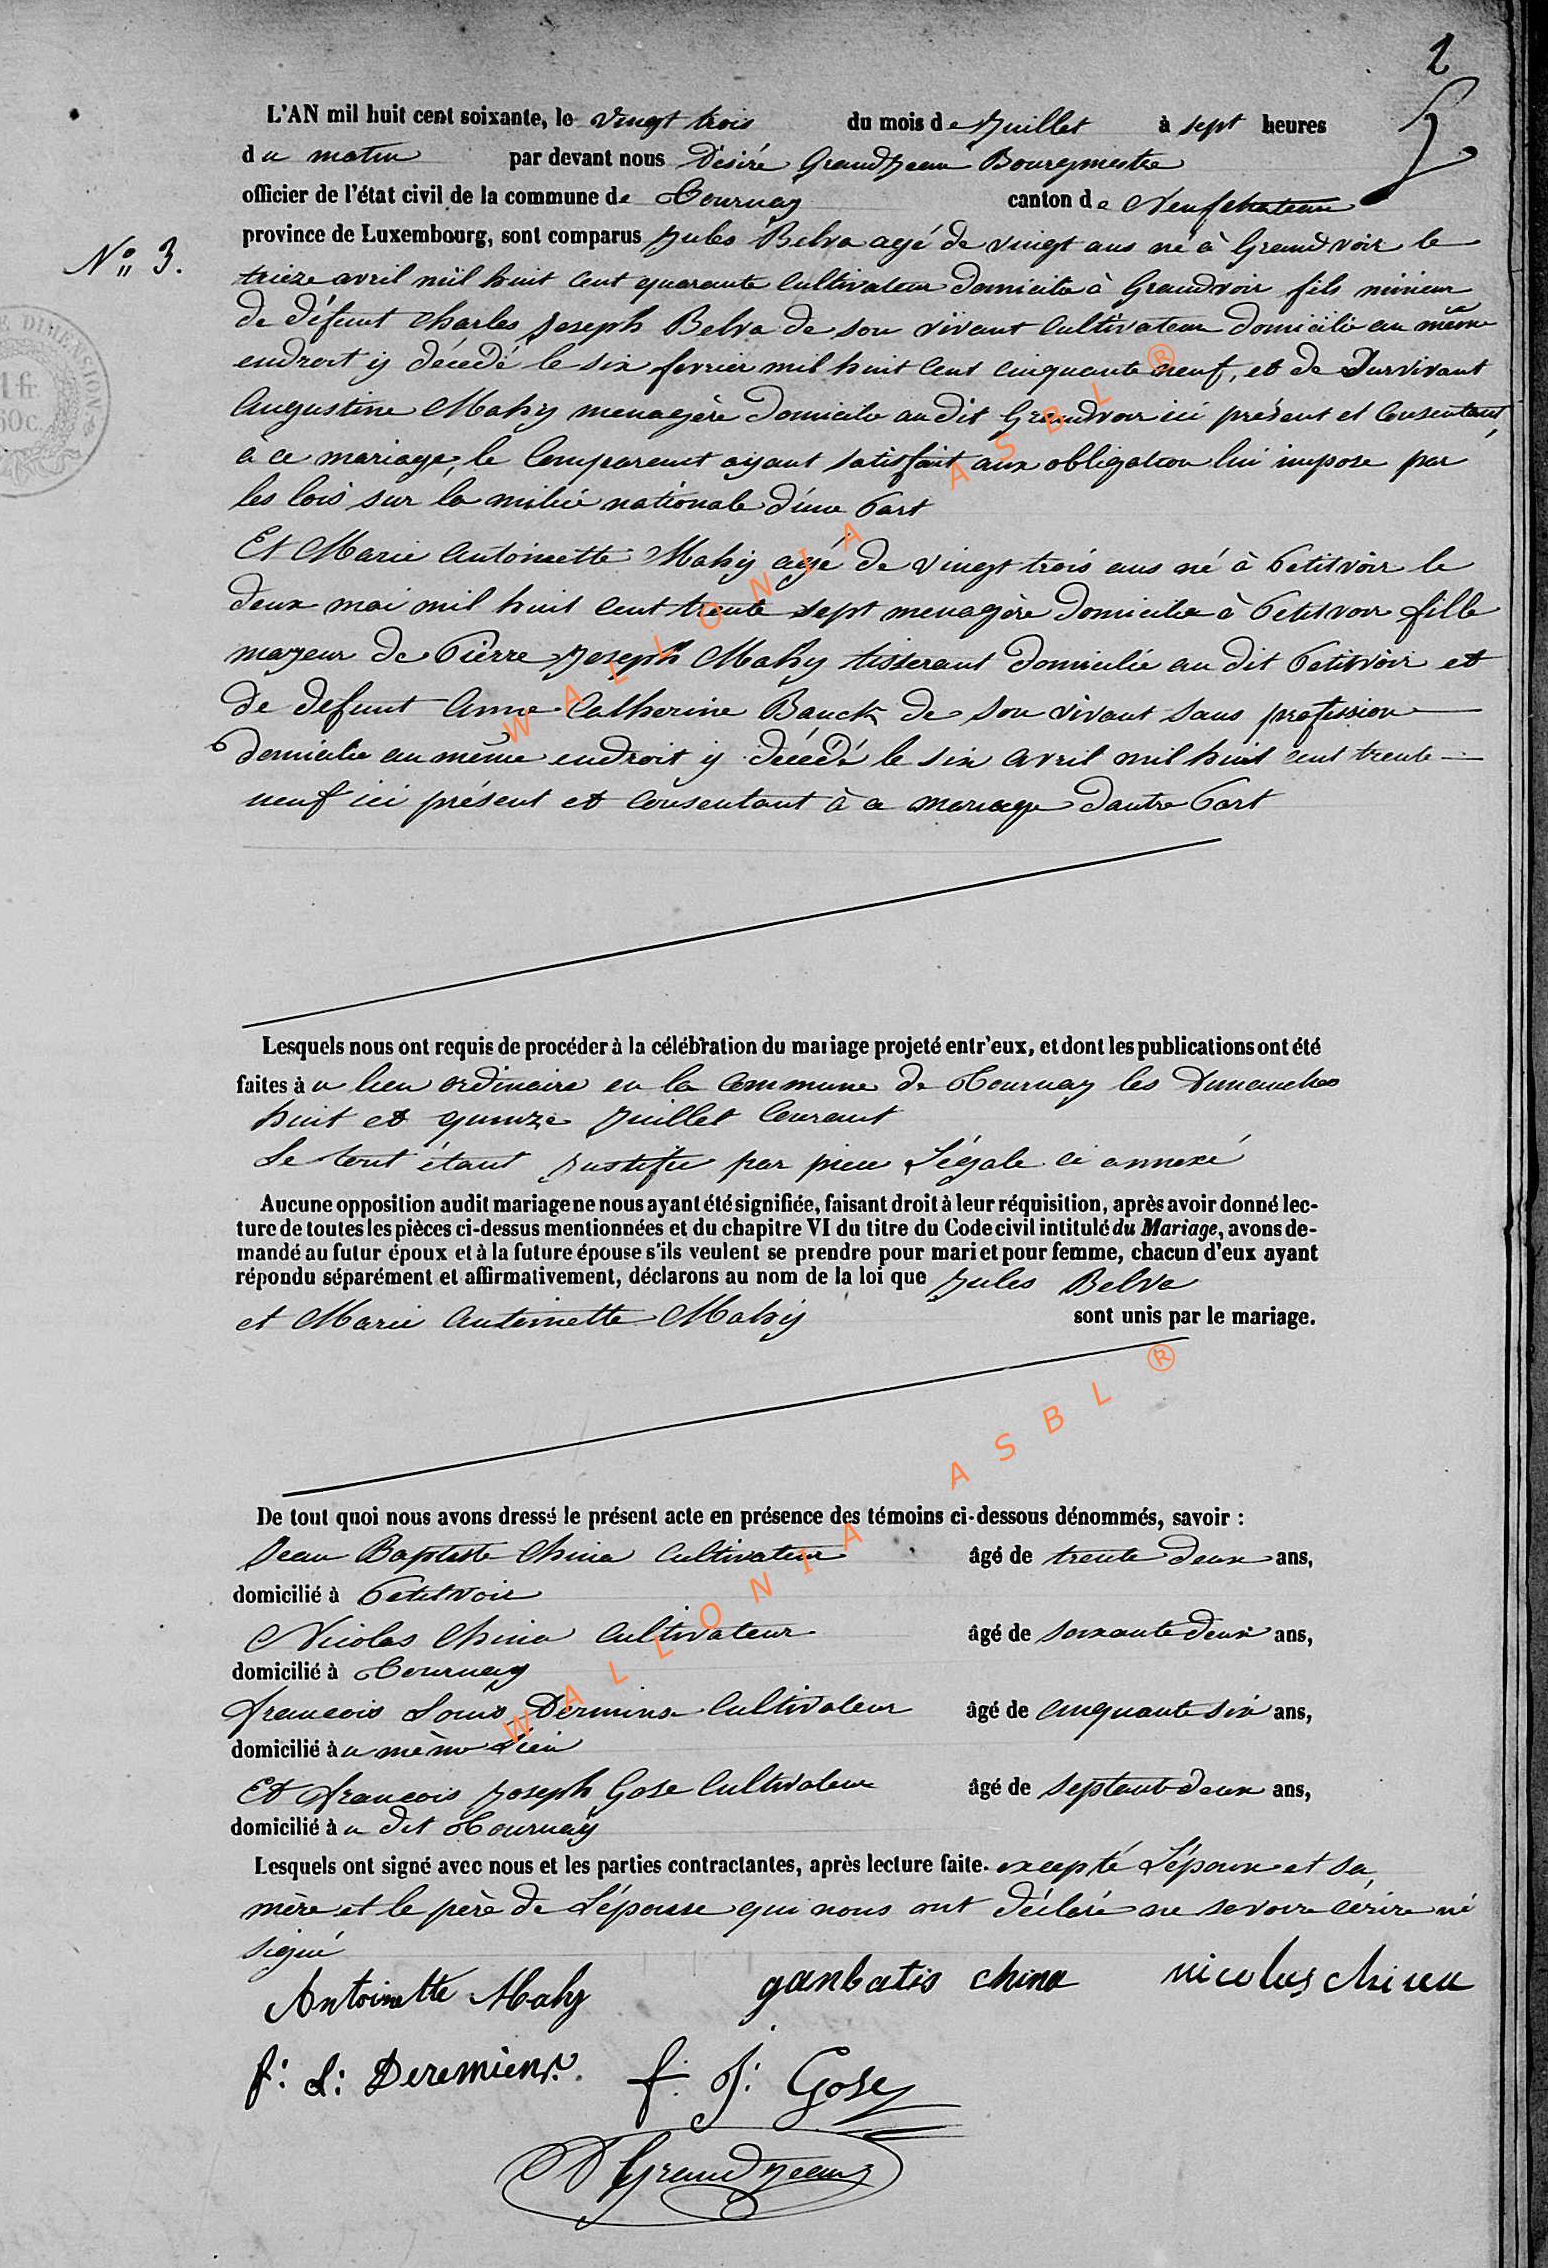 2
L'AN mil huit cent soixante, le vingt trois du mois de Juillet à sept heures
du matin par devant nous Désiré Grandjean Bourgmestre
officier de l'état civil de la commune de Tournay canton de Neufchateau
N° 3.
province de Luxembourg, sont comparus Jules Belva agé de vingt ans né à Grandvoir le
treize avril mil huit cent quarante Cultivateur domicilié à Grandvoir fils mineur
de défunt Charles Joseph Belva de son vivant Cultivateur domicilié au même
endroit y décédé le six fevrier mil huit cent cinquante neuf, et de Survivant
Augustine Mahy menagère domicilie audit Grandvoir ici présent et Consentant,
à ce mariage, le Comparant ayant satisfait aux obligation lui impose par
les lois sur la milice nationale d'une Part
Et Marie Antoinette Mahy agé de vingt trois ans né à Petitvoir le
deux mai mil huit cent trente sept menagère domicilie à Petitvoir fille
majeur de Pierre Joseph Mahy tisserant domicilié au dit Petitvoir et
de defunt Anne Catherine Bauck de son vivant sans profession
domicilie au même endroit y décédé le six avril mil huit cent trente
neuf ici présent et consentant à ce mariage dautre Part
Lesquels nous ont requis de procéder à la célébration du mariage projeté entr'eux, et dont les publications ont été
faites au lieu ordinaire en la Commune de Tournay les Dimanches
huit et quinze Juillet Courant
Le tout étant justifie par piece Légale ci annexé
Aucune opposition audit mariage ne nous ayant été signifiée, faisant droit à leur réquisition, après avoir donné lec-
ture de toutes les pièces ci-dessus mentionnées et du chapitre VI du titre du Code civil intitulé du Mariage, avons de-
mandé au futur époux et à la future épouse s'ils veulent se prendre pour mari et pour femme, chacun d'eux ayant
répondu séparément et affirmativement, déclarons au nom de la loi que Jules Belva
et Marie Antoinette Mahy sont unis par le mariage.
De tout quoi nous avons dressé le présent acte en présence des témoins ci-dessous dénommés, savoir :
Jean Baptiste China Cultivateur âgé de trente deux ans,
domicilié à Petitvoir
Nicolas China Cultivateur âgé de soixante deux ans,
domicilié à Tournay
francois Louis Dermine Cultivateur âgé de cinquante six ans,
domicilié au même Lieu
Et francois Joseph Gose Cultivateur âgé de septante deux ans,
domicilié au dit Tournay
Lesquels ont signé avec nous et les parties contractantes, après lecture faite. excepté L'époux et sa
mère et le père de L'épouse qui nous ont déclaré ne savoir écrire ni
signé
Antoinette Mahy ganbatis china nicolas china
f: L: Deremiens. f. J: Gose
D Grandjean
WALLONIA ASBL ®
WALLONIA ASBL ®